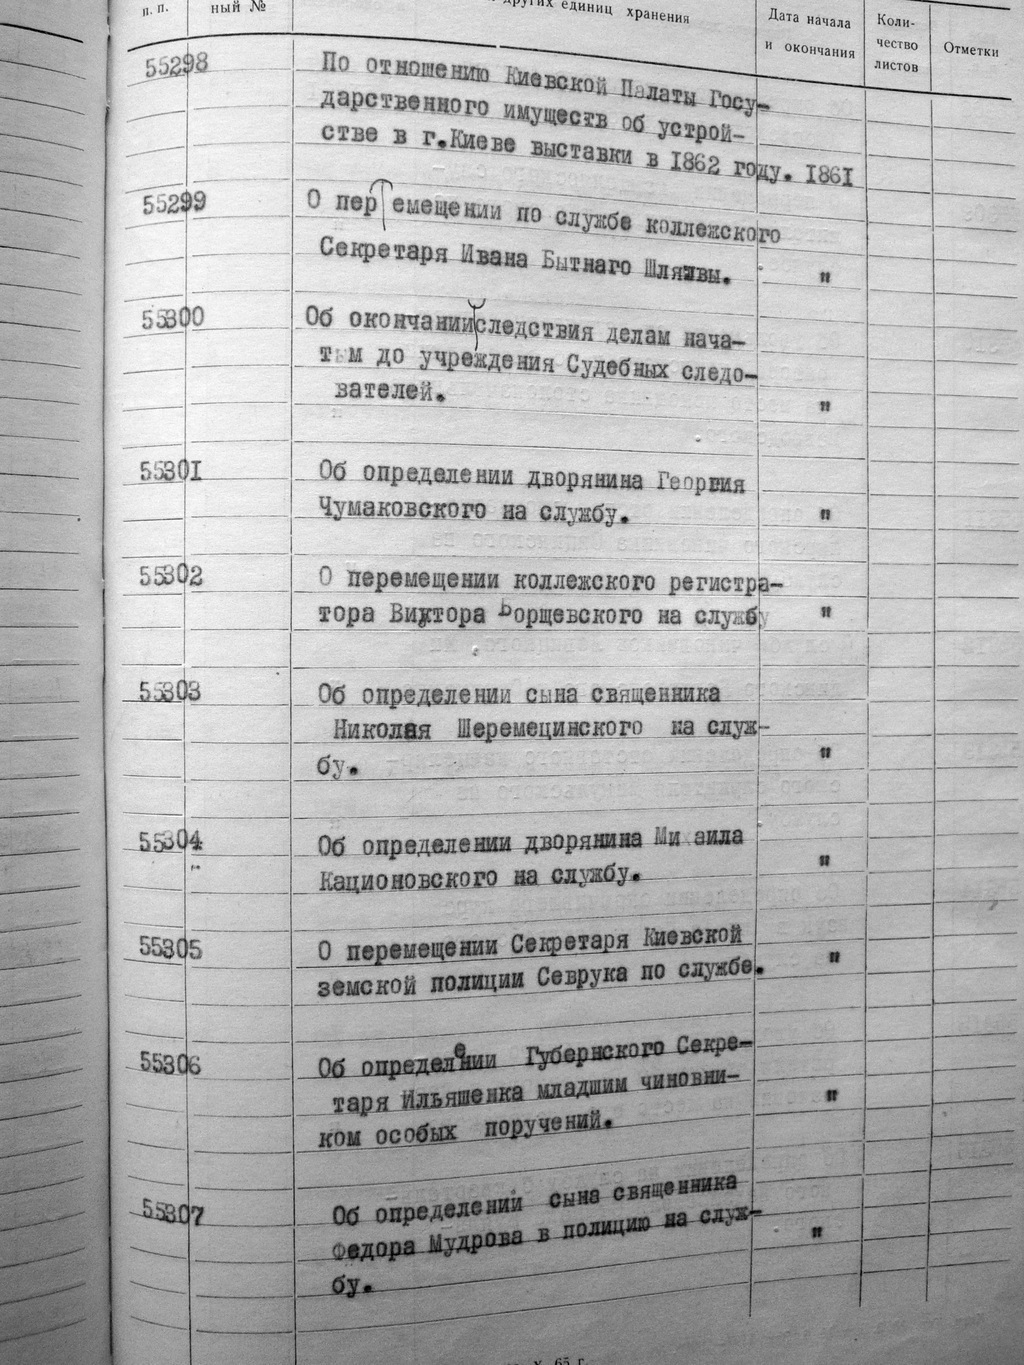 п. п.
ный №
других единиц хранения
Дата начала
и окончания
Коли-
чество
листов
Отметки
55298 По отношению Киевской Палаты Госу-
дарственного имуществ об устрой-
стве в г.Киеве выставки в 1862 году. 1861
55299 О пер емещении по службе коллежского
Секретаря Ивана Бытнаго Шляхвы. "
55300 Об окончанииследствия делам нача-
тым до учреждения Судебных следо-
вателей. "
55301 Об определении дворянина Георгия
Чумаковского на службу. "
55302 О перемещении коллежского регистра-
тора Виктора Борщевского на службу "
55303 Об определении сына священника
Николая Шеремецинского на служ-
бу. "
55304 Об определении дворянина Михаила
Кационовского на службу. "
55305 О перемещении Секретаря Киевской
земской полиции Севрука по службе. "
55306 Об определении Губернского Секре-
таря Ильяшенка младшим чиновни-
ком особых поручений. "
55307 Об определений сына священника
Федора Мудрова в полицию на служ-
бу. "